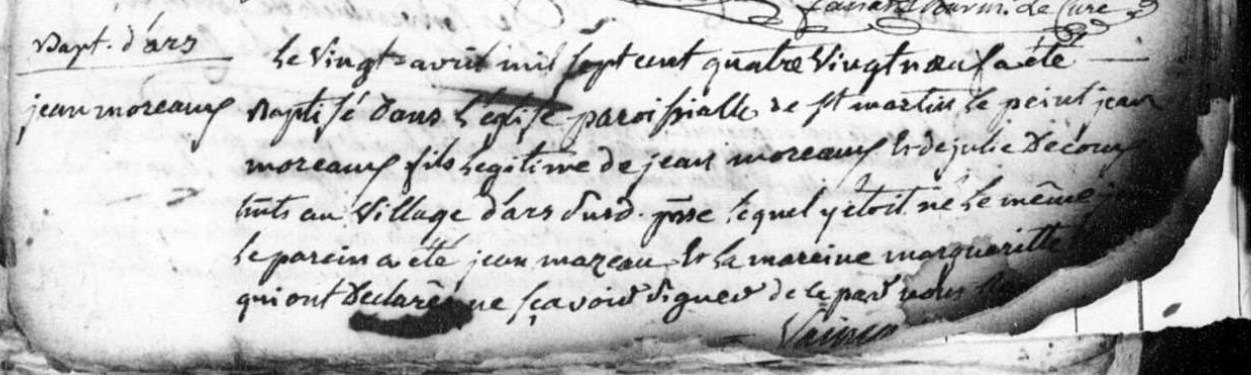 Le Curé
Bapt. d'ars
Le vingt avril mil sept cent quatre vingt neuf a été
jean moreaux
Baptisé dans L'église paroissialle de st martin le peint jean
moreaux fils Légitime de jean moreaux et de julie Decoux
au village d'ars susd. psse lequel y étoit né le même
Le parein a été jean mazeau et la mareine margueritte
qui ont Declaré ne sçavoir signer de ce par nous